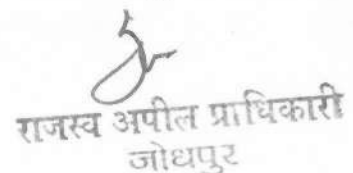 राजस्व अपील प्राधिकारी
जोधपुर